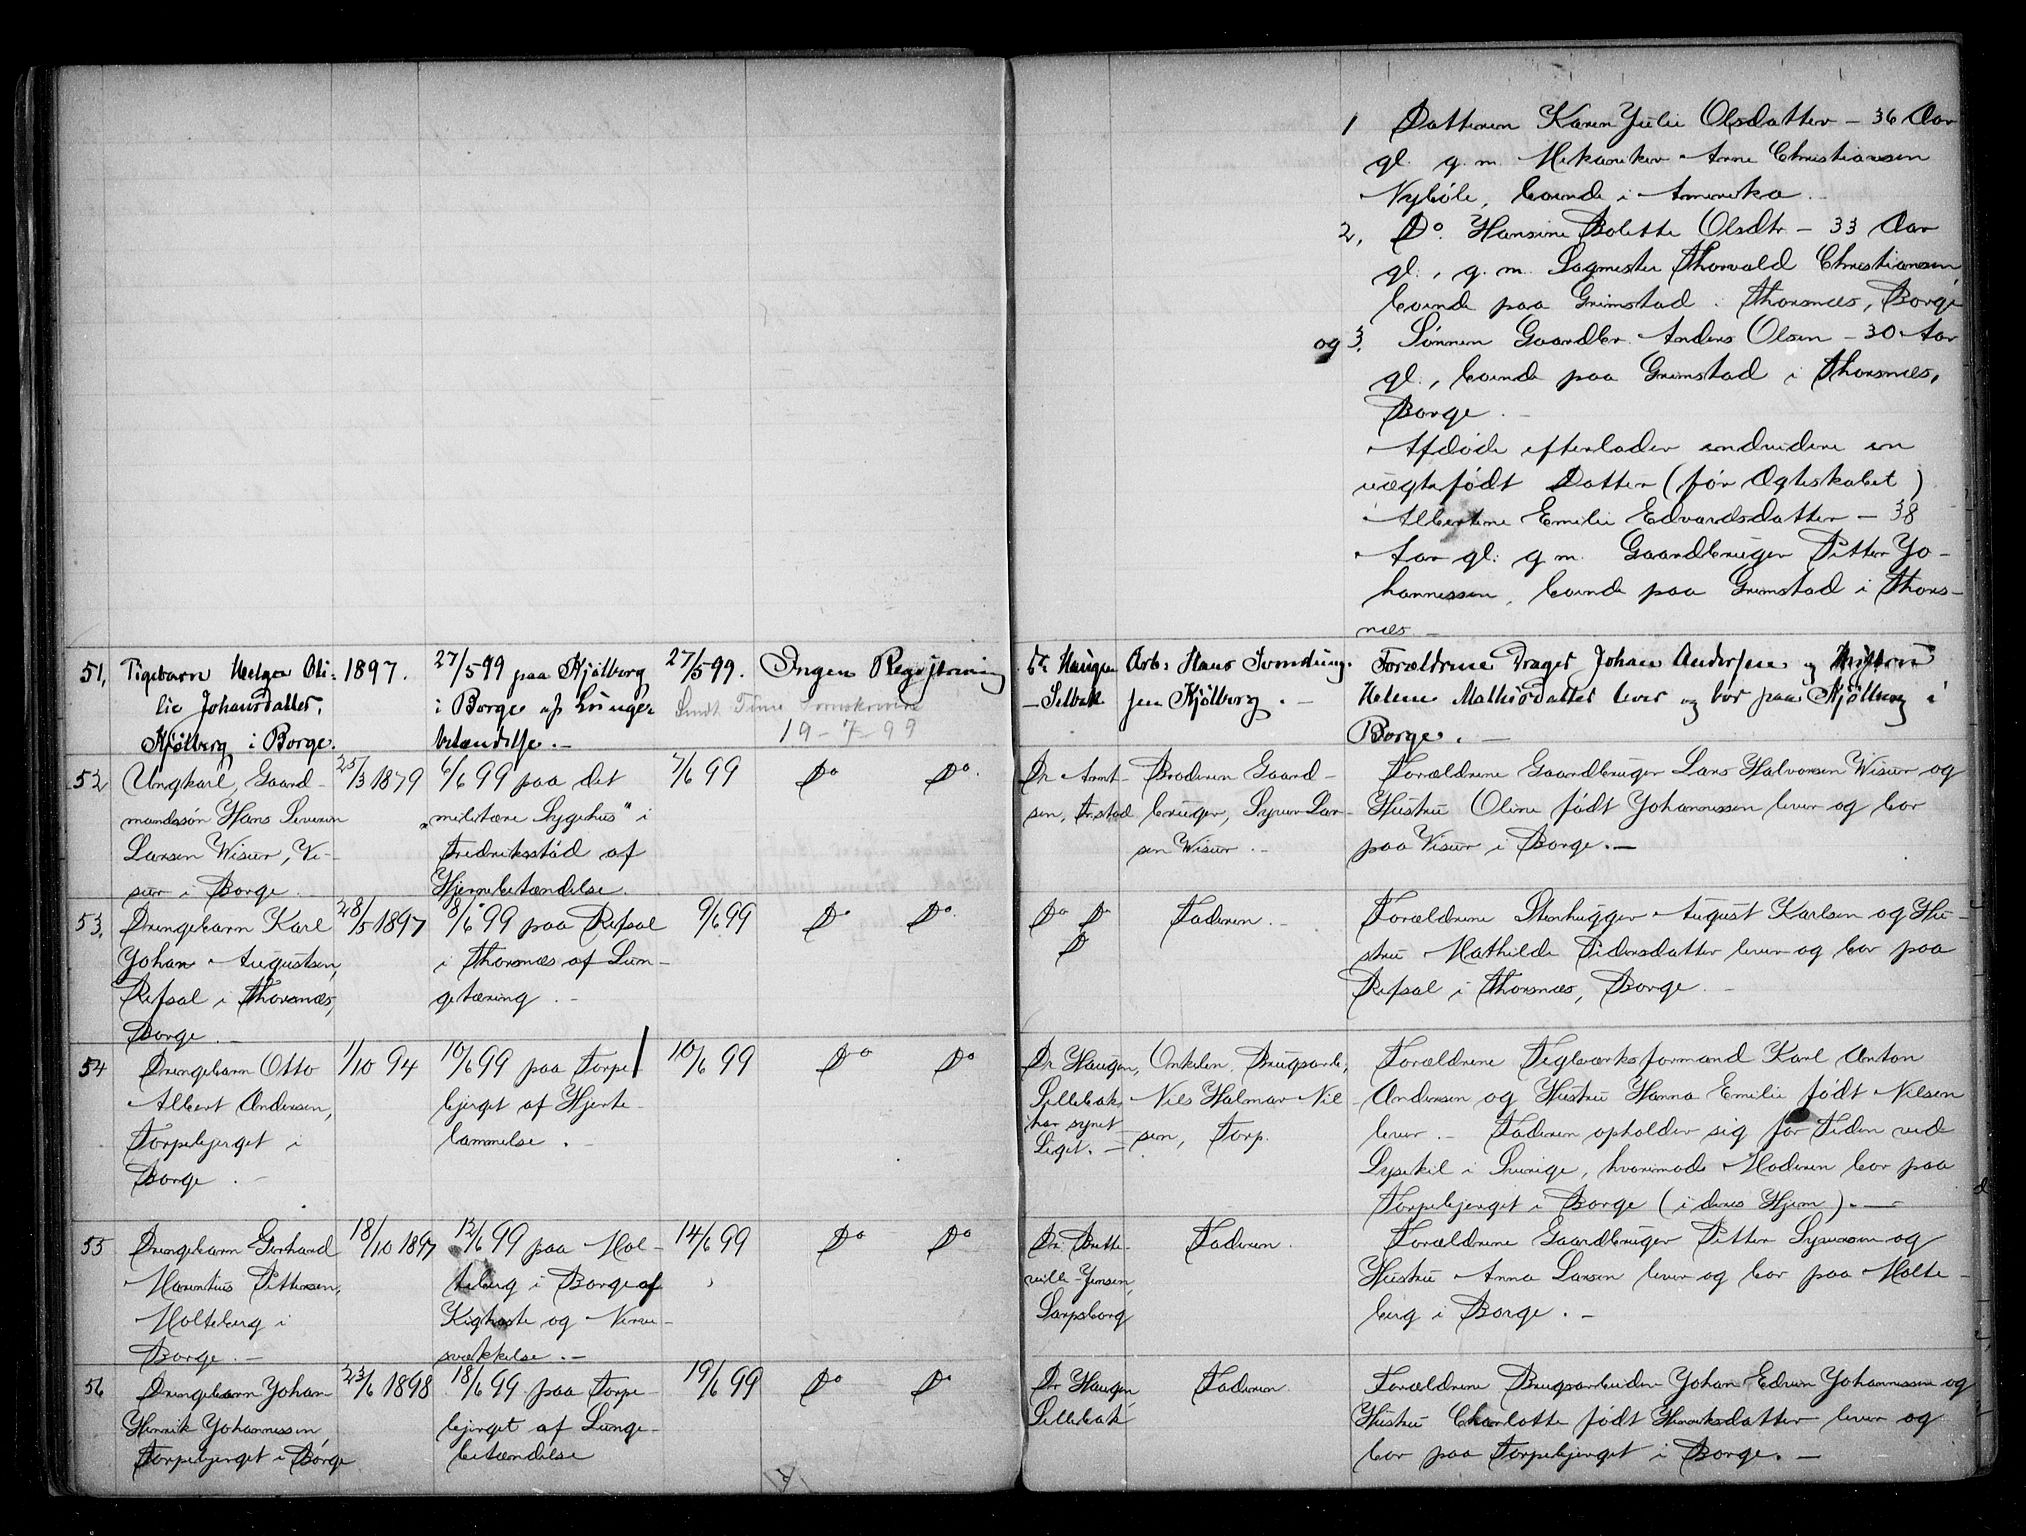 1 Datteren Karen Julie Olsdatter – 36 Aar
gl. g. m. Mekaniker Arne Christiansen
Nyböle, boende i Amerika.
2, Do. Hansine Bolette Olsdtr – 33 Aar
gl., g. m. Sagmester Thorvald Christiansen
boende paa Grimstad i Thorsnæs, Borge
og 3. Sønnen Gaardbr. Anders Olsen – 30 Aar
gl., boende paa Grimstad i Thorsnæs,
Borge. –
Afdøde efterlader endvidere en
uægtefødt Datter (før Ægteskabet)
Albertine Emilie Edvardsdatter – 38
Aar gl. g. m. Gaardbruger Petter Jo-
hannessen, boende paa Grimstad i Thors-
næs. –
51, Pigebarn Helga Oli-
lie Johansdatter,
Kjølberg i Borge.
1897.
27/5 99 paa Kjølberg
i Borge af Lunge-
betændelse. –
27/5 99.
Ingen Registrering
Sendt Tune Sorenskriveri
19–7–99
Dr. Haugen
– Selbak
Arb: Hans Svendsen
Kjølberg. –
Forældrene Drager Johan Andersen og Hustru
Helene Mathisdatter lever og bor paa Kjølberg i
Borge. –
52 Ungkarl, Gaard-
mandssøn Hans Severin
Larsen Wisur, Vi-
sur i Borge.
25/3 1879
6/6 99 paa det
„militære Sygehus" i
Fredriksstad af
Hjernebetændelse.
7/6 99
Do Do.
Dr Arnt-
sen, Frstad
Broderen Gaard-
bruger, Syver Lar-
sen Wisur. –
Forældrene Gaardbruger Lars Halvorsen Wisur og
Hustru Oline født Johannessen lever og bor
paa Visur i Borge. –
53, Drengebarn Karl
Johan Augustsen,
Refsal i Thorsnæs,
Borge. –
28/5 1897
8/6 99 paa Refsal
i Thorsnæs af Lun-
getæring. –
9/6 99
Do Do.
Do Do
Do
Faderen. –
Forældrene Stenhugger August Karlsen og Hu-
stru Mathilde Pedersdatter lever og bor paa
Refsal i Thorsnæs, Borge. –
54 Drengebarn Otto
Albert Andersen,
Torpebjerget i
Borge. –
1/10 94
10/6 99 paa Torpe
bjerget af Hjerte-
lammelse. –
10/6 99
Do Do
Dr Haugen,
Sellebak
har synet
Liget. –
Onkelen, Brugsarb.,
Nils Halmar Nil-
sen, Torp.
Forældrene Teglværksformand Karl Anton
Andersen og Hustru Hanna Emilie født Nilsen
lever. – Faderen opholder sig for Tiden ved
Lysekil i Sverige, hvorimod Moderen bor paa
Torpebjerget i Borge (i deres Hjem). –
55 Drengebarn Gerhard
Marentius Pettersen,
Molteberg i
Borge. –
18/10 1897
12/6 99 paa Mol-
teberg i Borge af
Kighoste og Nerve-
svækkelse. –
14/6 99
Do Do
Dr. Bette-
ville-Jensen,
Sarpsborg
Faderen.
Forældrene Gaardbruger Petter Syversen og
Hustru Anna Larsen lever og bor paa Molte-
berg i Borge. –
56 Drengebarn Johan
Henrik Johannessen
Torpebjerget i Borge
23/6 1898
18/6 99 paa Torpe-
bjerget af Lunge-
betændelse
19/6 99
Do Do
Dr Haugen
Sellebak
Faderen.
Forældrene Brugsarbeider Johan Edvin Johannessen og
Hustru Charlotte født Henriksdatter lever og
bor paa Torpebjerget i Borge. –